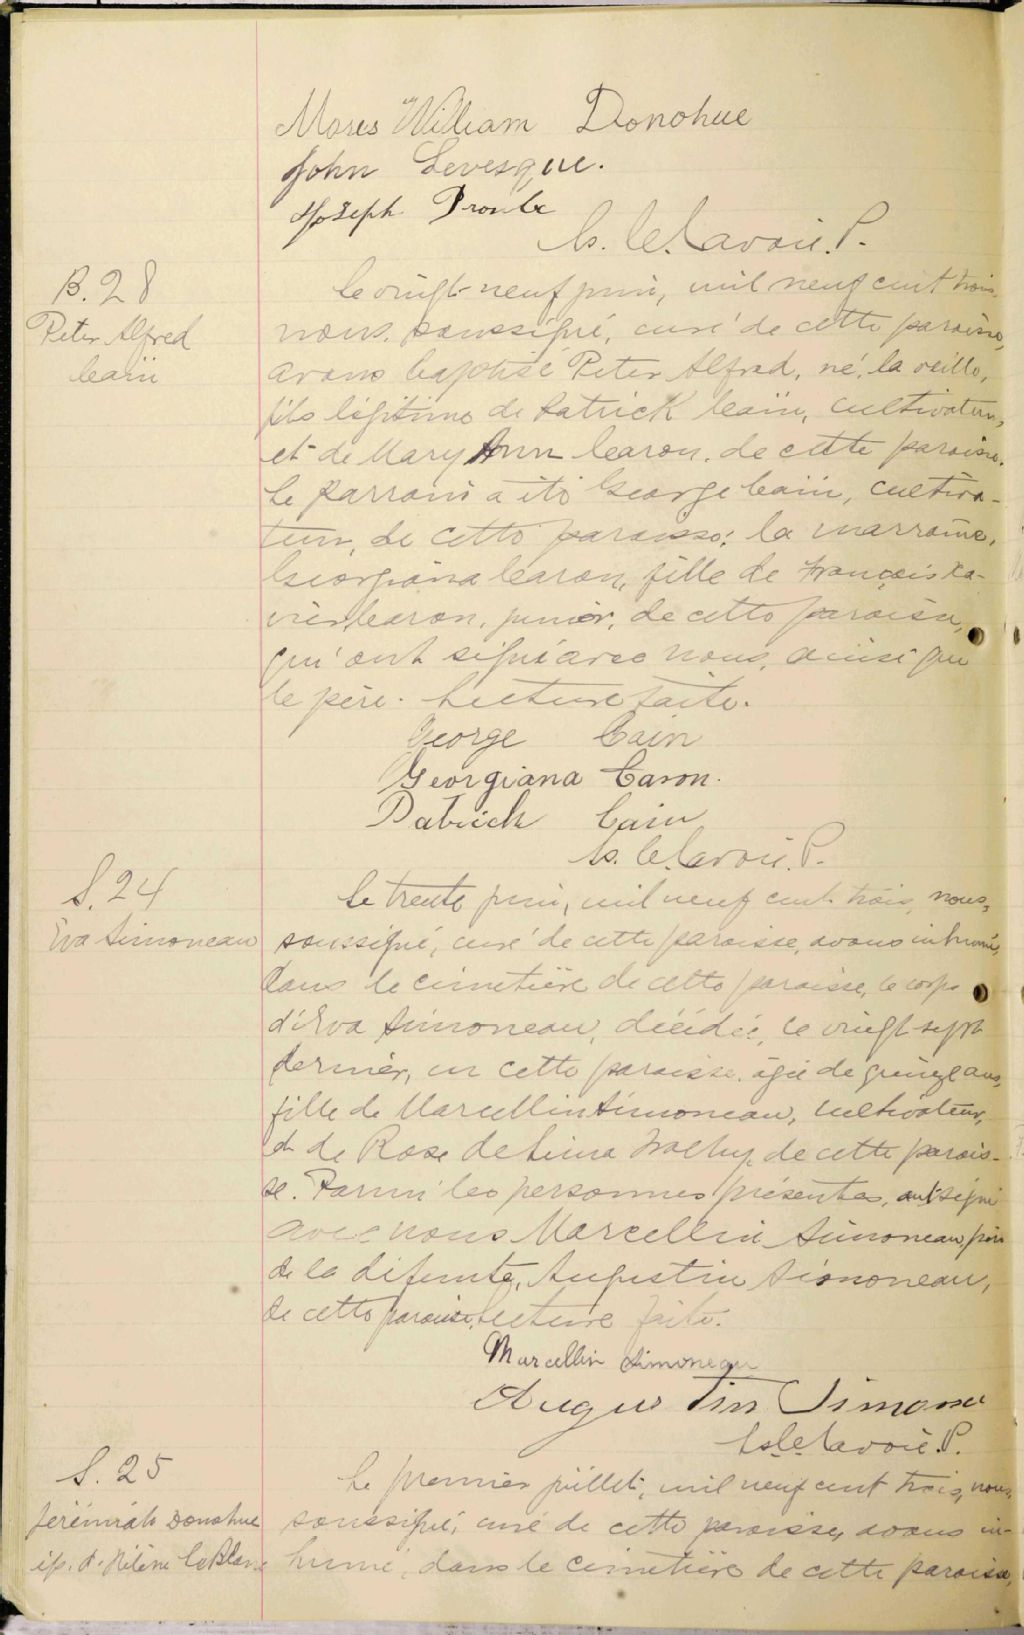 Moses William Donohue
John Levesque.
Joseph Proulx
Le vingt-neuf juin, mil neuf cent trois,
B. 28
Peter Alfred
Cain
nous, soussigné, curé de cette paroisse,
avons baptisé Peter Alfred, né, la veille,
fils légitime de Patrick Cain, cultivateur,
et de Mary Ann Caron, de cette paroisse.
Le parrain a été George Cain, cultiva-
teur, de cette paroisse; la marraine,
Georgiana Caron, fille de François Xa-
vier Caron, junior, de cette paroisse,
qui ont signé avec nous, ainsi que
le père. Lecture faite.
George Cain
Georgiana Caron.
Patrick Cain
S. 24
Eva Simoneau
Le trente juin, mil neuf cent trois, nous,
soussigné, curé de cette paroisse, avons inhumé,
dans le cimetière de cette paroisse, le corps
d'Eva Simoneau, décédée, le vingt-sept
dernier, en cette paroisse, âgée de quinze ans,
fille de Marcellin Simoneau, cultivateur,
et de Rose de Lima de cette parois-
se. Parmi les personnes présentes, ont signé
avec nous Marcellin Simoneau, père
de la défunte, Augustin Simoneau,
de cette paroisse. Lecture faite.
Marcellin Simoneau
Augustin Simono
S. 25
Jérémiah Donohue
ép. d'Hélène LeBlanc
Le premier juillet, mil neuf cent trois, nous,
soussigné, curé de cette paroisse, avons in-
humé, dans le cimetière de cette paroisse,